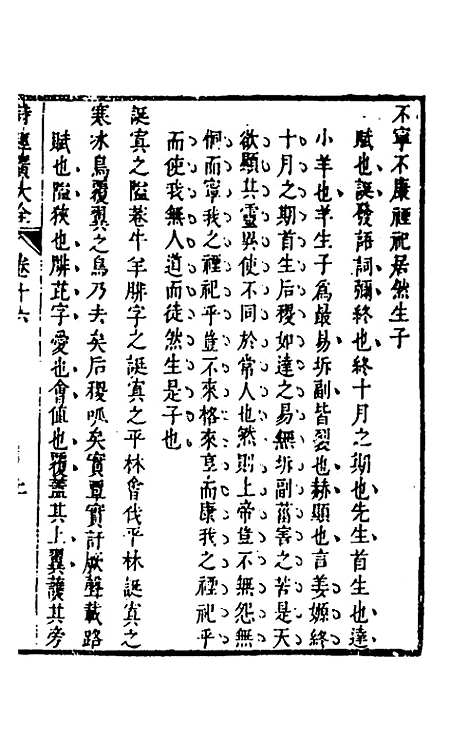 不寧不康禋祀居然生子
賦也誕發語詞彌終也終十月之期也先生首生也達
小羊也羊生子爲最易坼副皆裂也赫顯也言姜嫄終
十月之期首生后稷如達之易無坼副菑害之苦是天
欲顯其靈異使不同於常人也然則上帝豈不無怨無
恫而寧我之禋祀乎豈不來格來享而康我之禋祀乎
而使我無人道而徒然生是子也
誕寘之隘巷牛羊腓字之誕寘之平林會伐平林誕寘之
寒冰鳥覆翼之鳥乃去矣后稷呱矣實覃實訏厥聲載路
賦也隘狹也腓芘字愛也會值也覆蓋其上翼護其旁
詩經廣大全 卷十六